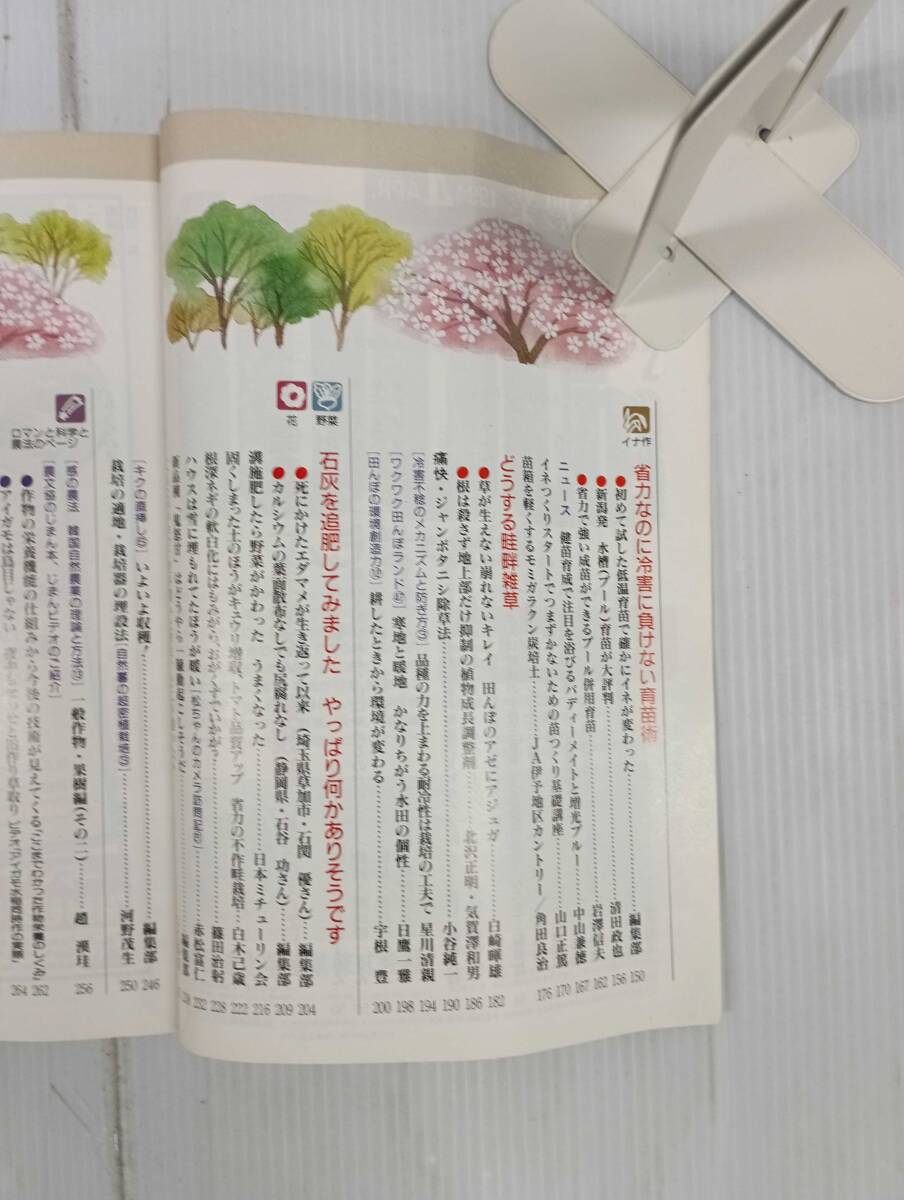 イナ作
省力なのに冷害に負けない育苗術……編集部 150
●初めて試した低温育苗で確かにイネが変わった……清田政也 156
●新潟発 水槽(プール)育苗が大評判……岩澤信夫 162
●省力で強い成苗ができるプール併用育苗……中山兼徳 167
ニュース 健苗育成で注目を浴びるバディーメイトと増光ブルー
イネつくりスタートでつまずかないための苗つくり基礎講座……山口正篤 170
苗箱を軽くするモミガラクン炭培土……JA伊予地区カントリー/角田良治 176
どうする畦畔雑草
●草が生えない崩れないキレイ 田んぼのアゼにアジュガ……白崎暉雄 182
●根は殺さず地上部だけ抑制の植物成長調整剤……北沢正明・気賀澤和男 186
痛快・ジャンボタニシ除草法……小谷純一 190
[冷害不稔のメカニズムと防ぎ方③] 品種の力を上まわる耐冷性は栽培の工夫で 星川清親 194
[ワクワク田んぼランド㊼] 寒地と暖地 かなりちがう水田の個性……日鷹一雅 198
[田んぼの環境創造力⑯] 耕したときから環境が変わる……宇根 豊 200
野菜
花
石灰を追肥してみました やっぱり何かありそうです
●死にかけたエダマメが生き返って以来 (埼玉県草加市・石関 優さん)……編集部 204
●カルシウムの葉面散布なしでも尻腐れなし (静岡県・石谷 功さん)……編集部 209
溝施肥したら野菜がかわった うまくなった……日本ミチューリン会 216
固くしまった土のほうがキュウリ増収、トマト品質アップ 省力の不作畦栽培……白木己歳 222
根深ネギの軟白化にはもみがら・おがくずでいかが?……篠田治躬 228
ハウスは雪に埋もれてたほうが暖い[松ちゃんのカメラ訪問記]……赤松富仁 232
[キクの直挿し⑥] いよいよ収穫!……編集部 246
栽培の適地・栽培器の埋設法[自然薯の超密植栽培③]……河野茂生 250
ロマンと科学と
農法のページ
[感の農法 韓国自然農業の理論と方法⑬] 一般作物・果樹編(その二)……趙 漢珪 256
[農文協のじまん本、じまんビデオのご紹介]
●作物の栄養機能の仕組みから今後の技術が見えてくる 262
●アイガモは 264